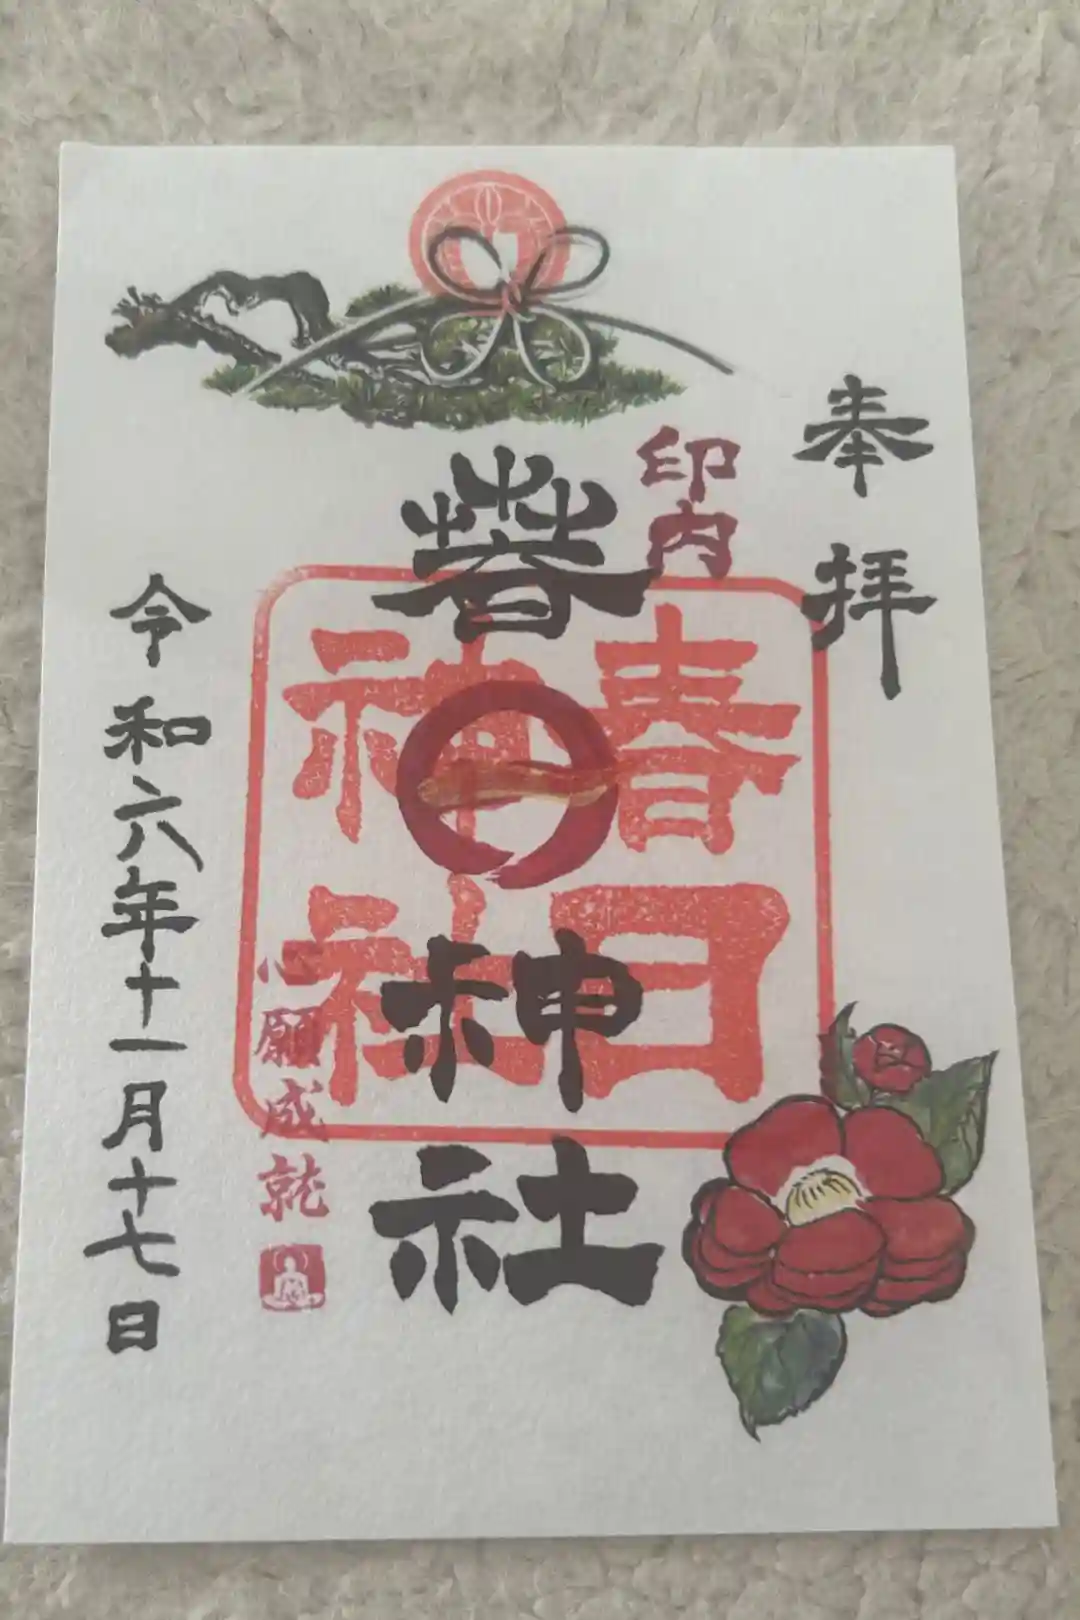 奉拝
印内
春日
神社
神社
心願成就
令和六年十一月十七日